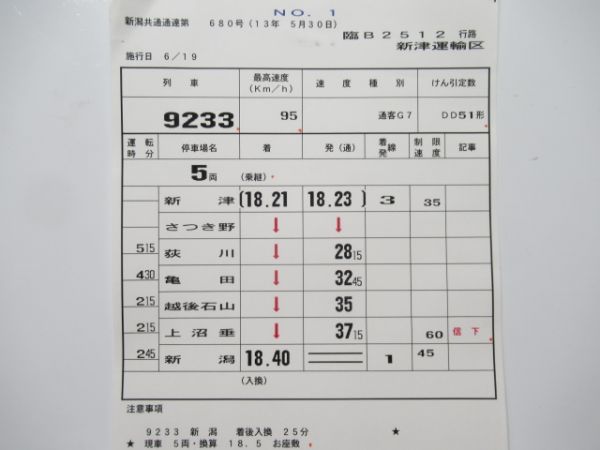 NO. 1
新潟共通通達第 680号(13年 5月30日)
臨B2512 行路
新津運輸区
施行日 6/19
列車 最高速度(Km/h) 速度種別 けん引定数
9233 95 通客G7 DD51形
運転時分 停車場名 着 発(通) 着発線 制限速度 記事
5両 (乗継)
新津 (18.21 18.23) 3 35
さつき野 ↓ ↓
515 荻川 ↓ 2815
430 亀田 ↓ 3245
215 越後石山 ↓ 35
215 上沼垂 ↓ 3715 60 信下
245 新潟 18.40 1 45
(入換)
注意事項
9233 新潟 着後入換 25分 ★
★ 現車 5両・換算 18.5 お座敷